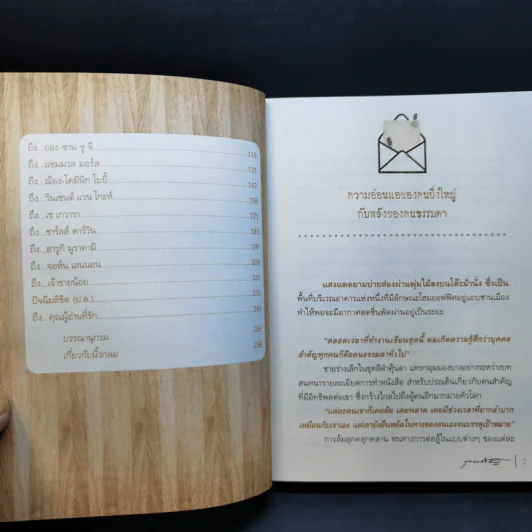 ถึง...ออง ซาน ซู จี 119
ถึง...แซมมวล มอร์ส 131
ถึง...ฌ็อง-โดมินิก โบบี้ 143
ถึง...วินเซนต์ แวน โกะห์
ถึง...เช เกวารา 171
ถึง...ชาร์ลส์ ดาร์วิน 183
ถึง...ฮารูกิ มูราคามิ 197
ถึง...จอห์น เลนนอน 209
ถึง...เจ้าชายน้อย 221
ปัจฉิมลิขิต (ป.ล.)
ถึง...คุณผู้อ่านที่รัก
บรรณานุกรม
เกี่ยวกับนิ้วกลม
ความอ่อนแอของคนยิ่งใหญ่
กับพลังของคนธรรมดา
แสงแดดยามบ่ายส่องผ่านพุ่มไม้ลงบนโต๊ะม้านั่ง ซึ่งเป็น
พื้นที่บริเวณอาคารแห่งหนึ่งที่มีลักษณะโฮมออฟฟิศอยู่แถบชานเมือง
ทำให้พอจะมีอากาศสดชื่นพัดผ่านอยู่เป็นระยะ
"ตลอดเวลาที่ทำงานเขียนชุดนี้ ผมเกิดความรู้สึกว่าบุคคล
สำคัญทุกคนก็คือคนธรรมดาทั่วไป"
ชายร่างเล็กในชุดสีดำคุ้นตา แทรกมุมมองบางอย่างระหว่างบท
สนทนารายละเอียดการทำหนังสือ สำหรับประเด็นเกี่ยวกับคนสำคัญ
ที่มีอิทธิพลต่อเขา ซึ่งกว้างไกลไปถึงผู้คนอีกมากมายทั่วโลก
"แต่ละคนเขาก็เคยล้ม เคยพลาด เคยมีช่วงเวลาที่ยากลำบาก
เหมือนกับเราเอง แต่เขายังยืนหยัดในทางของตนเองจนบรรลุเป้าหมาย"
การล้มลุกคลุกคลาน หนทางการต่อสู้ในแบบต่างๆ ของแต่ละ